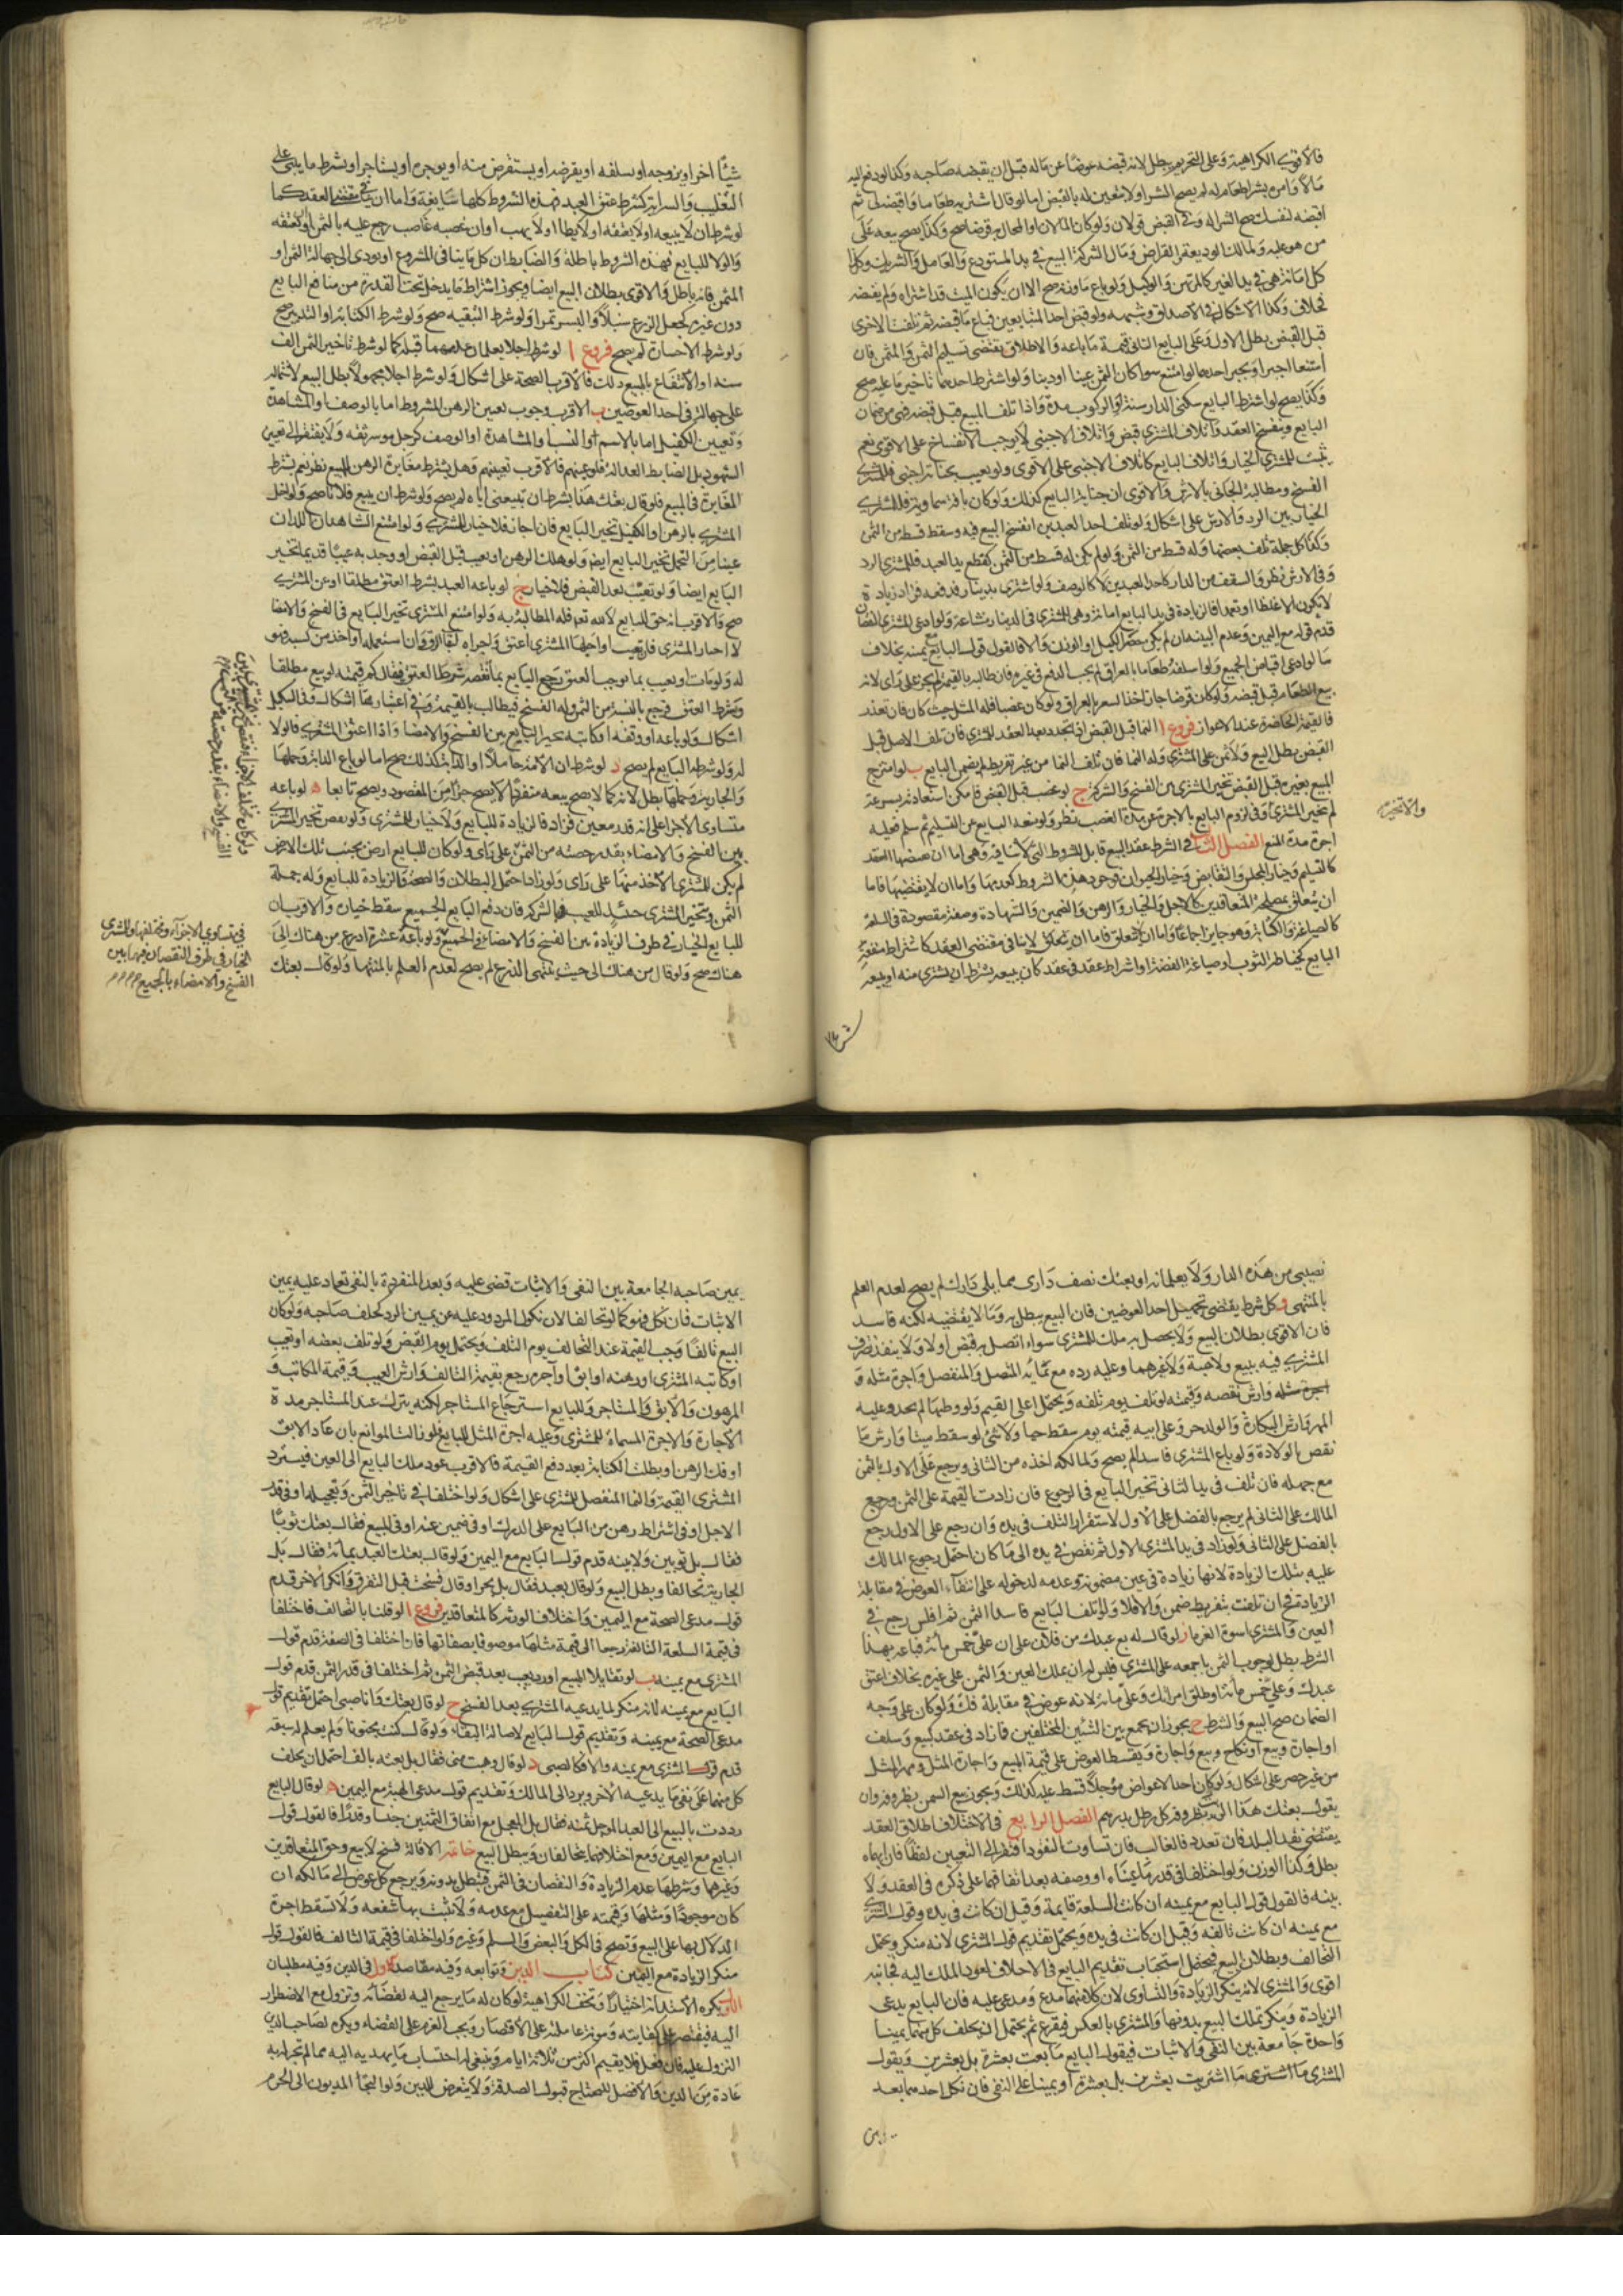 فالاقوى الكراهية وعلى التحريم يبطل لانه قبضه عوضا عن ماله قبل ان يقبضه صاحبه وكذا لو دفع اليه
مالا وامره بشراء طعام له لم يصح الشراء ولا يتعين له بالقبض اما لو قال اشتر به طعاما واقبضه لى ثم
اقبضه لنفسك صح الشراء وفى القبض قولان ولو كان المالان او المحال به قرضا صح وكذا يصح بيعه على
من هو عليه ولمالك الوديعة والقراض ومال الشركة البيع فى يد المستودع والعامل والشريك وكذا
كل امانة هى فى يد الغير كالمرتهن والوكيل ولو باع ما ورثه صح الا ان يكون الميت قد اشتراه ولم يقبضه
بخلاف وكذا الاشكال فى الاصداق وشبهه ولو قبض احد المتبايعين فباع ما قبضه ثم تلفت الاخرى
قبل القبض بطل الاول وعلى البايع الثانى قيمة ما باعه والاطلاق يقتضى تسليم الثمن والمثمن فان
امتنعا اجبرا ويجبر احدهما لو امتنع سواء كان الثمن عينا او دينا ولو اشترط احدهما تاخير ما عليه صح
وكذا يصح لو اشترط البايع سكنى الدار سنة او الركوب مدة واذا تلف المبيع قبل قبضه فهى من ضمان
البايع وينفسخ العقد واتلاف المشترى قبض واتلاف الاجنبى لا يوجب الانفساخ على الاقوى نعم
يثبت للمشترى الخيار واتلاف البايع كاتلاف الاجنبى على الاقوى ولو تعيب بجناية اجنبى فللمشترى
الفسخ ومطالبة الجانى بالارش والاقوى ان جناية البايع كذلك ولو كان بافة سماوية فللمشترى
الخيار بين الرد والارش على اشكال ولو تلف احد العبدين انفسخ البيع فيه وسقط قسطه من الثمن
وكذا كل جملة تلف بعضها وله قسط من الثمن ولو لم يكن له قسط من الثمن كقطع يد العبد فللمشترى الرد
وفى الارش نظر والسقف من الدار كاحد العبدين لا كالوصف ولو اشترى بدينار فدفعه فزاد زيادة
لا تكون الا غلطا او تعمدا فالزيادة فى يد البايع امانة وهى للمشترى فى الدينار مشاعة ولو ادعى المشترى النقصان
قدم قوله مع اليمين وعدم البينة ان لم يكن حضر الكيل او الوزن والا فالقول قول البايع مع يمينه بخلاف
ما لو ادعى اقباض الجميع ولو اسلفه طعاما بالعراق لم يجب الدفع فى غيره فان طالبه بالقيمة لم يجز على راى لانه
بيع الطعام قبل قبضه ولو كان قرضا جاز اخذ السعر بالعراق ولو كان غصبا فله المثل حيث كان فان تعذر
فالقيمة الحاضرة عند الاعواز فروع ا النماء قبل القبض اذا تجدد بعد العقد للمشترى فان تلف الاصل قبل
القبض بطل البيع ولا ثمن على المشترى وله النماء فان تلف النماء من غير تفريط لم يضمن البايع ب لو امتزج
المبيع بغيره قبل القبض تخير المشترى بين الفسخ والشركة ج لو غصب قبل القبض فامكن استعادته بسرعة
لم يتخير المشترى والا تخير وفى لزوم البايع بالاجرة عن مدة الغصب نظر ولو منعه البايع عن التسليم ثم سلم فعليه
اجرة مدة المنع الفصل الثالث فى الشرط عقد البيع قابل للشروط التى لا تنافيه وهى اما ان يقتضيها العقد
كالتسليم وخيار المجلس والتقابض وخيار الحيوان فوجود هذه الشروط كعدمها واما ان لا يقتضيها فاما
ان يتعلق بمصلحة المتعاقدين كالاجل والخيار والرهن والضمين والشهادة وصفة مقصودة فى السلعة
كالصياغة والكتابة وهو جايز اجماعا واما ان لا يتعلق فاما ان لا ينافى مقتضى العقد كاشتراط منفعة
البايع كخياطة الثوب او صياغة الفضة او اشتراط عقد فى عقد كان يبيعه بشرط ان يشترى منه او يبيعه
والا تخير
شيئا اخر او يزوجه او يسلفه او يقرضه او يستقرض منه او يوجره او يستاجر او بشرط ما يبنى على
التغليب والسراية كشرط عتق العبد فهذه الشروط كلها سايغة واما ان ينافى مقتضى العقد كما
لو شرط ان لا يبيعه او لا يعتقه او لا يطا او لا يهب او ان غصبه غاصب رجع عليه بالثمن او يعتقه
والولاء للبايع فهذه الشروط باطلة والضابط ان كل ما ينافى المشروع او يودى الى جهالة الثمن او
المثمن فانه باطل والاقوى بطلان البيع ايضا ويجوز اشتراط ما يدخل تحت القدرة من منافع البايع
دون غيره كجعل الزرع سنبلا والبسر تمرا ولو شرط التبقية صح ولو شرط الكتابة او التدبير صح
ولو شرط الاحسان لم يصح فروع ا لو شرط اجلا يعلمان عدمهما قبله كما لو شرط تاخير الثمن الف
سنة او الانتفاع بالمبيع ذلك فالاقرب الصحة على اشكال ولو شرط اجلا مجهولا بطل البيع لاشتماله
على جهالة فى احد العوضين ب الاقرب وجوب تعيين الرهن المشروط اما بالوصف او المشاهدة
وتعيين الكفيل اما بالاسم او النسب او المشاهدة او الوصف كرجل موسر ثقة ولا يفتقر الى تعيين
الشهود بل الضابط العدالة فلو عينهم فالاقرب تعينهم وهل يشترط مغايرة الرهن للمبيع نظر نعم يشترط
المغايرة فى المبيع فلو قال بعتك هذا بشرط ان تبيعنى اياه لم يصح ولو شرط ان يبيع فلانا صح ولو اخل
المشترى بالرهن او الكفيل تخير البايع فان اجاز فلا خيار للمشترى ولو امتنع الشاهدان اللذان
عينا من التحمل تخير البايع ايضا ولو هلك الرهن او تعيب قبل القبض او وجد به عيبا قديما تخير
البايع ايضا ولو تعيب بعد القبض فلا خيار ج لو باعه العبد بشرط العتق مطلقا او عن المشترى
صح والاقرب انه حق للبايع لا لله تعالى فله المطالبة به ولو امتنع المشترى تخير البايع فى الفسخ والامضاء
له ولو مات او تعيب بما يوجب العتق رجع البايع بما نقصه شرط العتق فيقال كم قيمته لو بيع مطلقا
وبشرط العتق فيرجع بالنسبة من الثمن وله الفسخ فيطالب بالقيمة وفى اعتبارها اشكال وفى التدبير
اشكال ولو باعه او وقفه او كاتبه تخير البايع بين الفسخ والامضاء واذا اعتق المشترى فالولاء
له ولو شرطه البايع لم يصح د لو شرط ان الامة حاملا او الدابة كذلك صح اما لو باع الدابة وحملها
والجارية وحملها بطل لانه كما لا يصح بيعه منفردا لا يصح جزءا من المقصود ويصح تابعا ه لو باعه
متساوى الاجزاء على انه قدر معين فزاد فالزيادة للبايع ولا خيار للمشترى ولو نقص تخير المشترى
بين الفسخ والامضاء بقدر حصته من الثمن على راى ولو كان للبايع ارض بجنب تلك الارض
لم يكن للمشترى الاخذ منها على راى ولو زاد احتمل البطلان والصحة والزيادة للبايع وله جملة
الثمن ويتخير المشترى حينئذ للعيب بالشركة فان دفع البايع الجميع سقط خياره والاقرب ان
للبايع الخيار فى طرف الزيادة بين الفسخ والامضاء فى الجميع ولو باعه عشرة اذرع من هناك الى
هناك صح ولو قال من هناك الى حيث ينتهى الذرع لم يصح لعدم العلم بالمنتهى ولو قال بعتك
فى متساوى الاجزاء ومختلفها وللمشترى
الخيار فى طرف النقصان فيهما بين
الفسخ والامضاء بالجميع
نصيبى من هذه الدار ولا يعلمانه او بعتك نصف دارى مما يلى دارك لم يصح لعدم العلم
بالمنتهى و كل شرط يقتضى تجهيل احد العوضين فان البيع يبطل به وما لا يقتضيه لكنه فاسد
فان الاقوى بطلان البيع ولا يحصل به ملك للمشترى سواء اتصل به قبض او لا ولا ينفذ تصرف
المشترى فيه ببيع ولا هبة ولا غيرهما وعليه رده مع نمائه المتصل والمنفصل واجرة مثله و
ارش نقصه وقيمته لو تلف يوم تلفه ويحتمل اعلى القيم ولو وطئها لم يحد وعليه
المهر وارش البكارة والولد حر وعلى ابيه قيمته يوم سقط حيا ولا شئ لو سقط ميتا وارش ما
نقص بالولادة ولو باع المشترى فاسدا لم يصح ولمالكه اخذه من الثانى ويرجع على الاول بالثمن
مع جهله فان تلف فى يد الثانى تخير البايع فى الرجوع فان زادت القيمة على الثمن ورجع
المالك على الثانى لم يرجع بالفضل على الاول لاستقرار التلف فى يده وان رجع على الاول رجع
بالفضل على الثانى ولو زاد فى يد المشترى الاول ثم نقص فى يده الى ما كان احتمل رجوع المالك
عليه بتلك الزيادة لانها زيادة فى عين مضمونة وعدمه لدخوله على انتفاء العوض فى مقابلة
الزيادة فح ان تلفت بتفريط ضمن والا فلا ولو اتلف البايع فاسدا الثمن ثم افلس رجع فى
العين والمشترى اسوة الغرماء ز لو قال له بع عبدك من فلان على ان على خمس مائة فباعه بهذا
الشرط بطل لوجوب الثمن باجمعه على المشترى فليس له ان يملك العين والثمن على غيره بخلاف اعتق
عبدك وعلى خمس مائة او طلق امراتك وعلى مائة لانه عوض فى مقابلة فك ولو كان على وجه
الضمان صح البيع والشرط ح يجوز ان يجمع بين الشيئين المختلفين فما زاد فى عقد كبيع وسلف
او اجارة وبيع او نكاح وبيع واجارة ويقسط العوض على قيمة المبيع واجارة المثل ومهر المثل
من غير حصر على اشكال ولو كان احد الاعواض مؤجلا قسط عليه كذلك ويجوز بيع السمن بظروفه وان
يقول بعتك هذا الزيت بظروفه كل رطل بدرهم الفصل الرابع فى الاختلاف اطلاق العقد
يقتضى نقد البلد فان تعدد فالغالب فان تساوت النقود افتقر الى التعيين لفظا فان ابهماه
بطل وكذا الوزن ولو اختلفا فى قدر ما عيناه او وصفه بعد اتفاقهما على ذكره فى العقد ولا
بينة فالقول قول البايع مع يمينه ان كانت السلعة قايمة وقيل ان كانت فى يده وقول المشترى
مع يمينه ان كانت تالفة وقيل ان كانت فى يده ويحتمل تقديم قول المشترى لانه منكر ويحتمل
التحالف وبطلان البيع فيحتمل استحباب تقديم البايع فى الاحلاف لعود الملك اليه فجانبه
اقوى والمشترى لانه ينكر الزيادة والتساوى لان كلا منهما مدع ومدعى عليه فان البايع يدعى
الزيادة وينكر تملك المبيع بدونها والمشترى بالعكس فيقرع ثم يحتمل ان يحلف كل منهما يمينا
واحدة جامعة بين النفى والاثبات فيقول البايع ما بعت بعشرة بل بعشرين ويقول
المشترى ما اشتريت بعشرين بل بعشرة او يمينا على النفى فان نكل احدهما بعد
يمين صاحبه الجامعة بين النفى والاثبات قضى عليه وبعد المنفردة بالنفى تعاد عليه يمين
الاثبات فان نكل فهو كما لو تحالفا لان نكول المردود عليه عن يمين الرد كحلف صاحبه ولو كان
المبيع تالفا وجب القيمة عند التحالف يوم التلف ويحتمل يوم القبض ولو تلف بعضه او تعيب
او كاتبه المشترى او رهنه او ابق او اجره رجع بقيمة التالف وارش العيب وقيمة المكاتب و
المرهون والابق والمستاجر وللبايع استرجاع المستاجر لكنه يترك عند المستاجر مدة
الاجارة والاجرة المسماة للمشترى وعليه اجرة المثل للبايع فلو زالت الموانع بان عاد الابق
او فك الرهن او بطلت الكتابة بعد دفع القيمة فالاقرب عود ملك البايع الى العين فيسترد
المشترى القيمة والنماء المنفصل للمشترى على اشكال ولو اختلفا فى تاخير الثمن وتعجيله او فى قدر
الاجل او فى اشتراط رهن من البايع على الدرك او فى ضمين عنه او فى المبيع فقال بعتك ثوبا
فقال بل ثوبين ولا بينة قدم قول البايع مع اليمين ولو قال بعتك العبد بمائة فقال بل
الجارية تحالفا وبطل البيع ولو قال بعبد فقال بل بحر او قال فسخت قبل التفرق وانكر الاخر قدم
قول مدعى الصحة مع اليمين واختلاف الورثة كالمتعاقدين فروع ا لو قلنا بالتحالف فاختلفا
فى قيمة السلعة التالفة رجعا الى قيمة مثلها موصوفا بصفاتها فان اختلفا فى الصفة قدم قول
المشترى مع يمينه ب لو تقايلا المبيع او رد بعيب بعد قبض الثمن ثم اختلفا فى قدر الثمن قدم قول
البايع مع يمينه لانه منكر لما يدعيه المشترى بعد الفسخ ج لو قال بعتك وانا صبى احتمل تقديم قول
مدعى الصحة مع يمينه وتقديم قول البايع لاصالة البقاء ولو قال كنت مجنونا ولم يعلم له سبقه
قدم قول المشترى مع يمينه والا فكالصبى د لو قال وهبت منى فقال بل بعته بالف احتمل ان يحلف
كل منهما على نفى ما يدعيه الاخر ويرد الى المالك وتقديم قول مدعى الهبة مع اليمين ه لو قال البايع
رددت بالبيع الى العبد الموجل ثمنه فقال بل المعجل مع اتفاق الثمنين جنسا وقدرا فالقول قول
البايع مع اليمين ومع اختلافهما يتحالفان ويبطل البيع خاتمة الاقالة فسخ لا بيع وحق المتعاقدين
وغيرهما وشرطها عدم الزيادة والنقصان فى الثمن فتبطل بدونه ويرجع كل عوض الى مالكه ان
كان موجودا ومثلها وقيمته على التفصيل مع عدمه ولا تثبت بها شفعة ولا تسقط اجرة
الدلال بها على البيع وتصح فى الكل والبعض والسلم وغيره ولو اختلفا فى قيمة التالف فالقول قول
منكر الزيادة مع اليمين كتاب الدين وتوابعه وفيه مقاصد الاول فى الدين وفيه مطلبان
الاول يكره الاستدانة اختيارا وتخف الكراهية لو كان له ما يرجع اليه لقضائه وتزول مع الاضطرار
اليه فيقتصر على كفايته ومونة عياله على الاقتصار ويجب العزم على القضاء ويكره لصاحب الدين
النزول عليه فان فعل فلا يقيم اكثر من ثلاثة ايام وينبغى له احتساب ما يهديه اليه مما لم تجر له به
عادة من الدين والافضل للمحتاج قبول الصدقة ولا يتعرض للدين ولو التجأ المديون الى الحرم